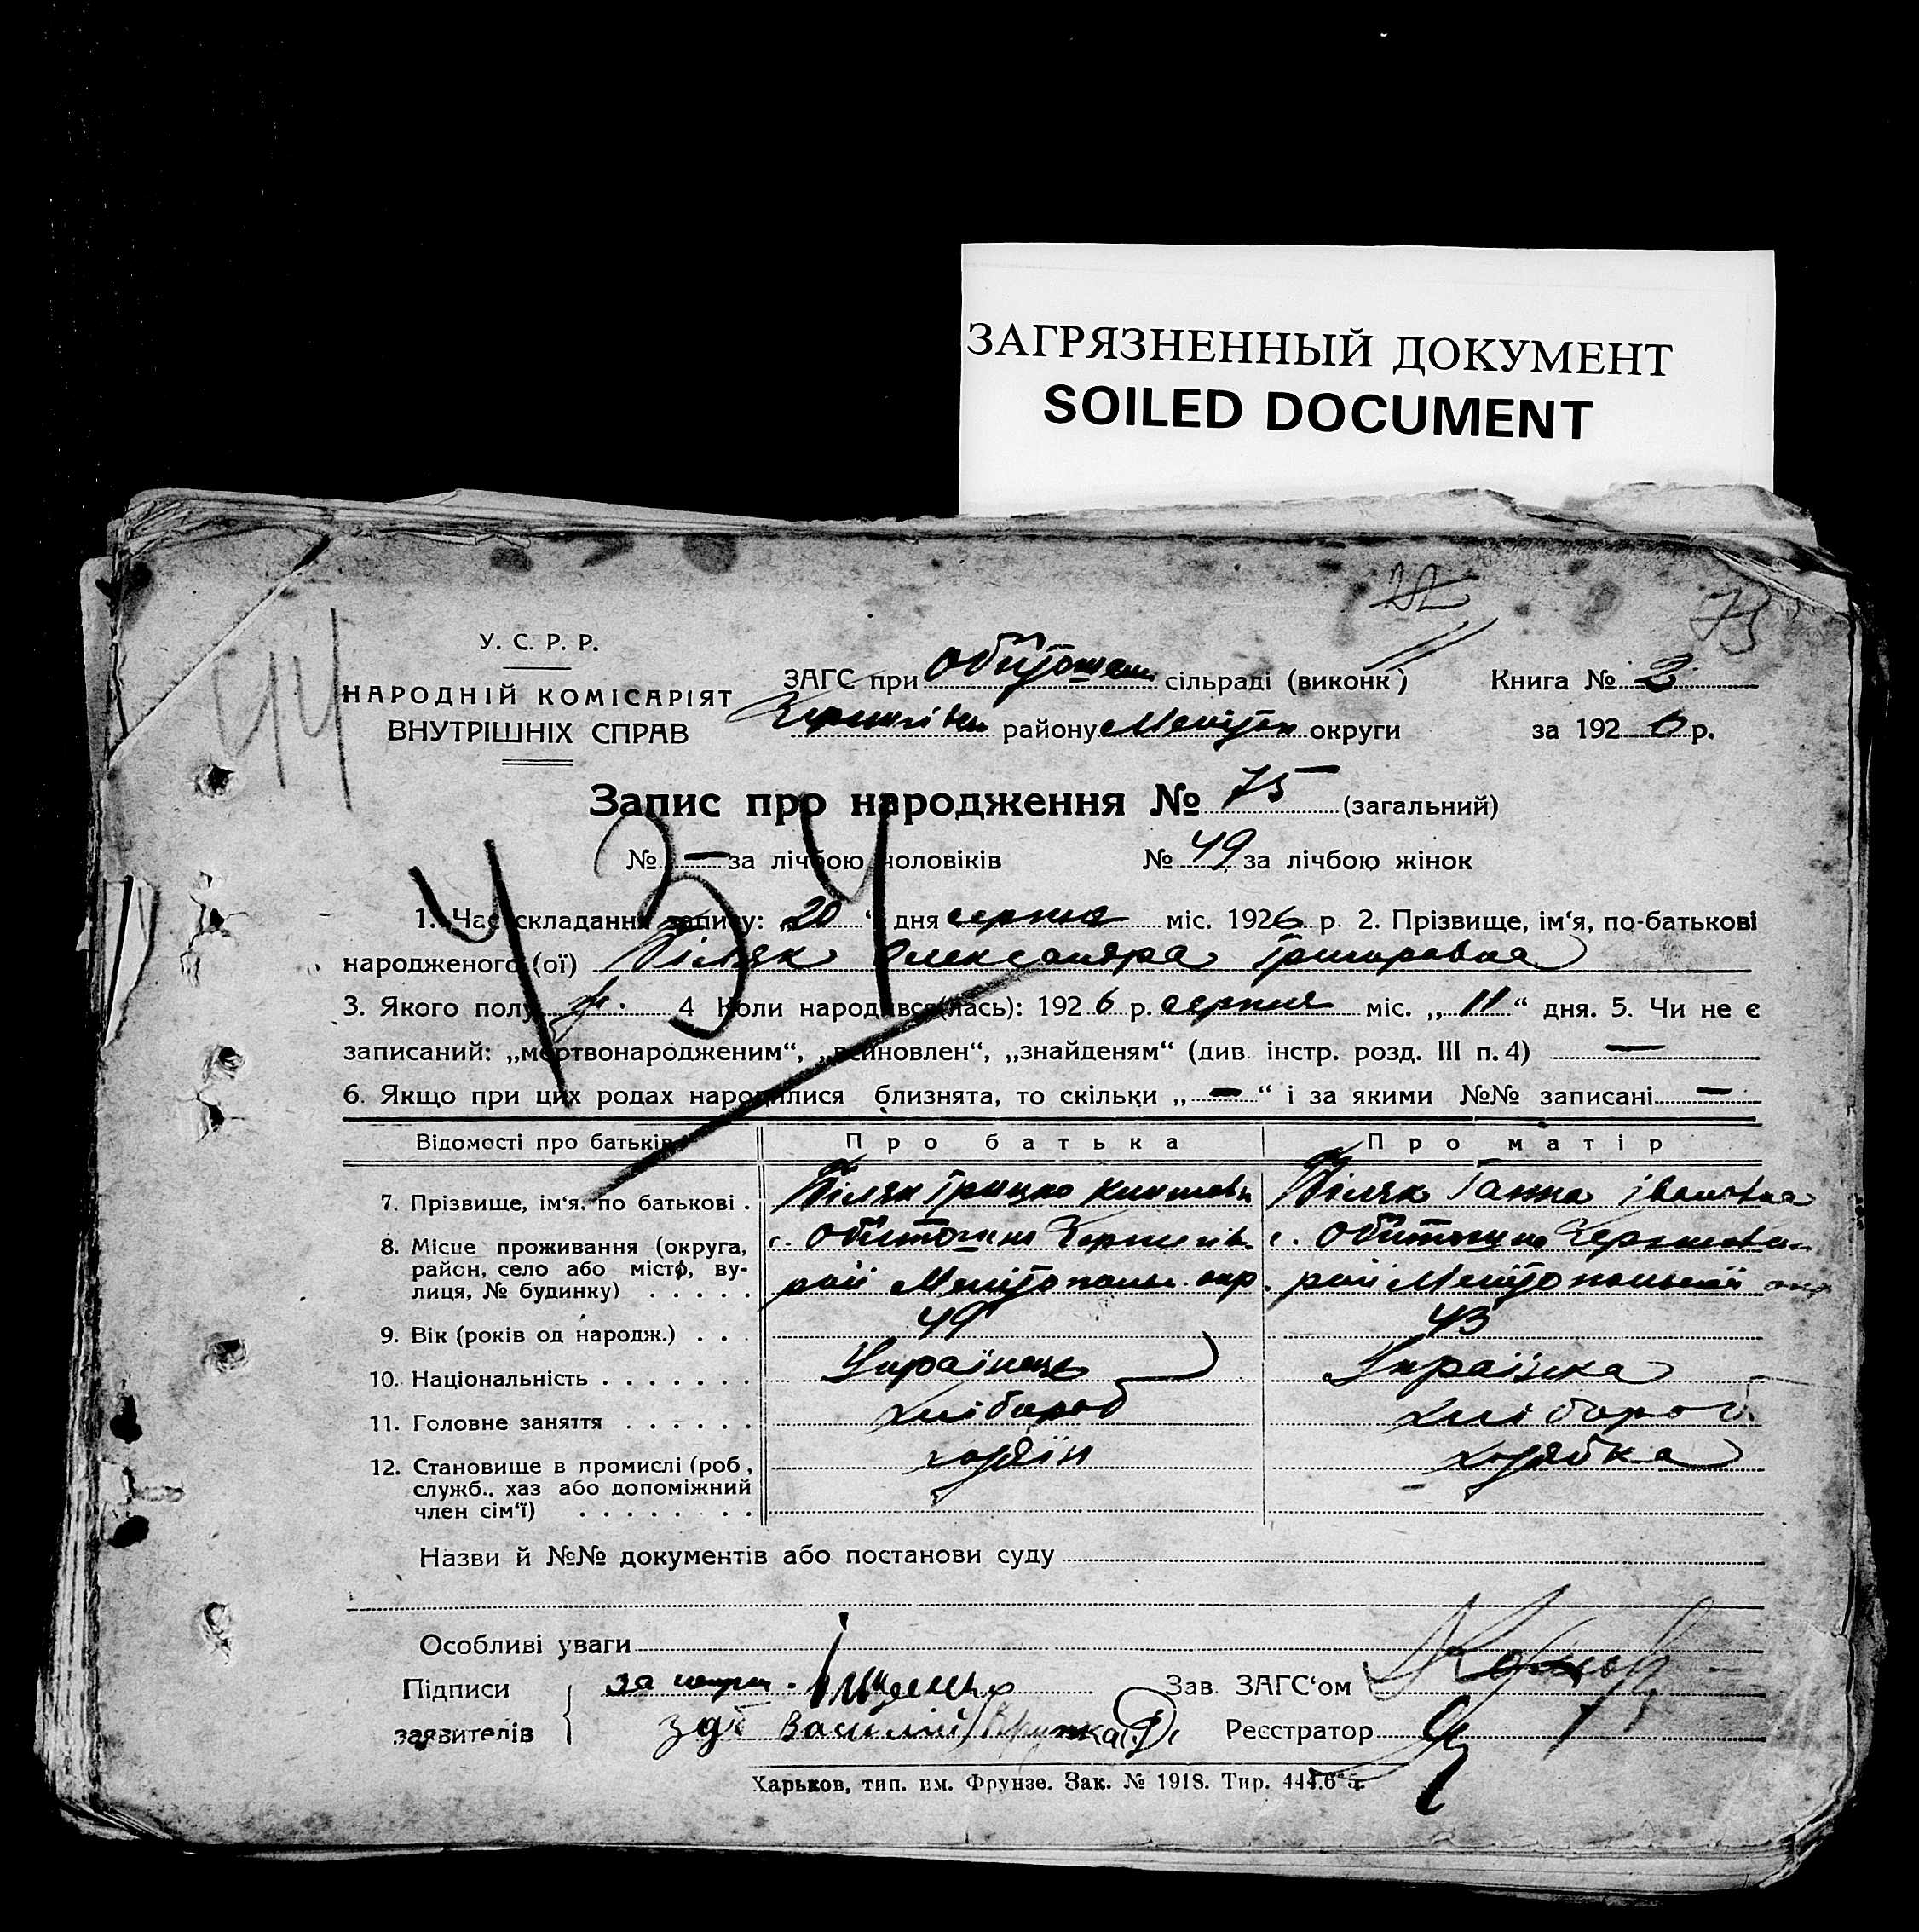 ЗАГРЯЗНЕННЫЙ ДОКУМЕНТ
SOILED DOCUMENT
75
44
У. С. Р. Р.
НАРОДНІЙ КОМІСАРІЯТ
ВНУТРІШНІХ СПРАВ
ЗАГС при сільраді (виконк) Книга № 2
району Мелітоп округи за 1926 р.
Запис про народження № 75 (загальний)
№ — за лічбою чоловіків № 49 за лічбою жінок
434
1. Час складання запису: 20 " дня серпня міс. 1926 р. 2. Прізвище, ім'я, по-батькові
народженого (ої) Біляк Олександра Григоровна
3. Якого полу ж. 4 Коли народився(лась): 1926 р. серпня міс. „ 11 " дня. 5. Чи не є
записаний: „мертвонародженим", „всиновлен", „знайденям" (див. інстр. розд. III п. 4) —
6. Якщо при цих родах народилися близнята, то скільки „ — " і за якими №№ записані —
Відомості про батьків Про батька Про матір
7. Прізвище, ім'я, по батькові . Біляк Грицко Біляк Ганна Івановна
8. Місце проживання (округа, с. Обиточна с. Обиточна
район, село або місто, ву-
лиця, № будинку) . . . . . рай Мелітопольс. окр. рай Мелітопольської окр
9. Вік (років од народж.) . . . 49 43
10. Національність . . . . . . . Українець Українка
11. Головне заняття . . . . . . хлібороб хлібороб.
12. Становище в промислі (роб, хазяїн хазяйка
служб., хаз або допоміжний
член сім'ї) . . . . . . . .
Назви й №№ документів або постанови суду
Особливі уваги
Підписи Іщенко Зав. ЗАГС'ом
заявителів Василій Реєстратор
Харьков, тип. им. Фрунзе. Зак. № 1918. Тир.